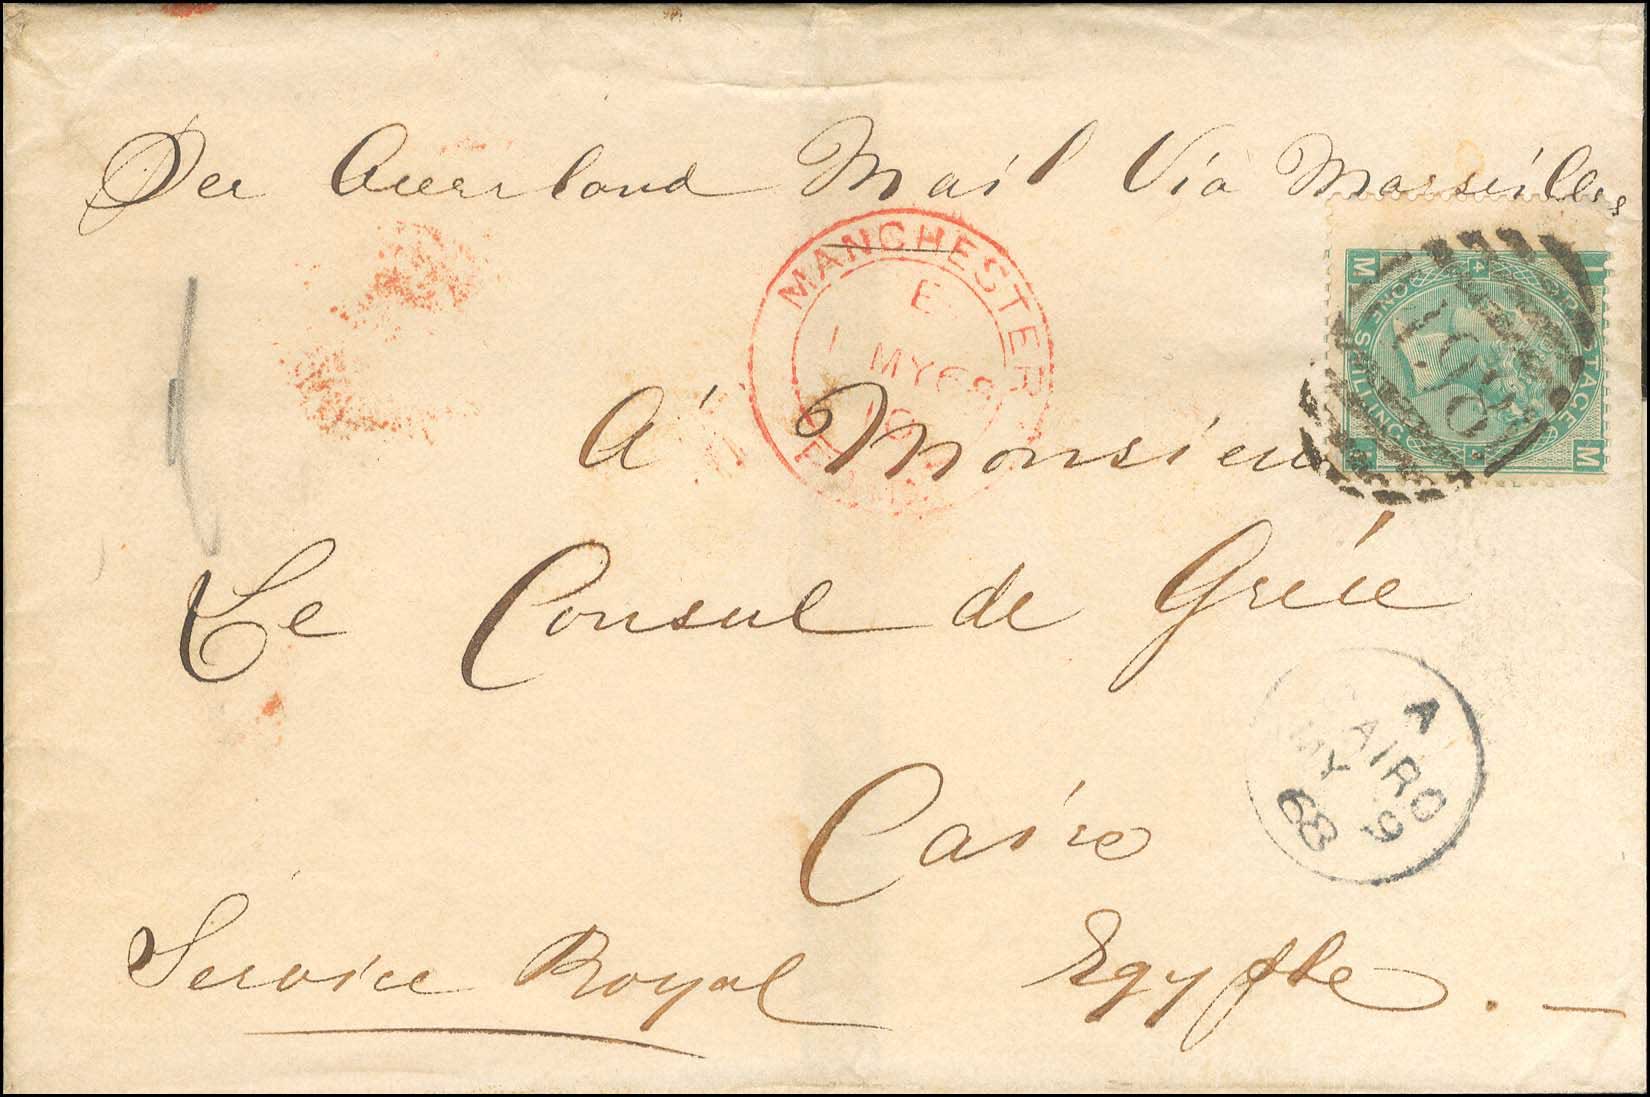 Per Overland Mail Via Marseilles
MANCHESTER
E
1 MY 68
A' Monsieur
Le Consul de Gréce
Cairo
Egypte . —
Service Royal
POSTAGE
ONE SHILLING
4
M
M
498
A
CAIRO
MY 9
68